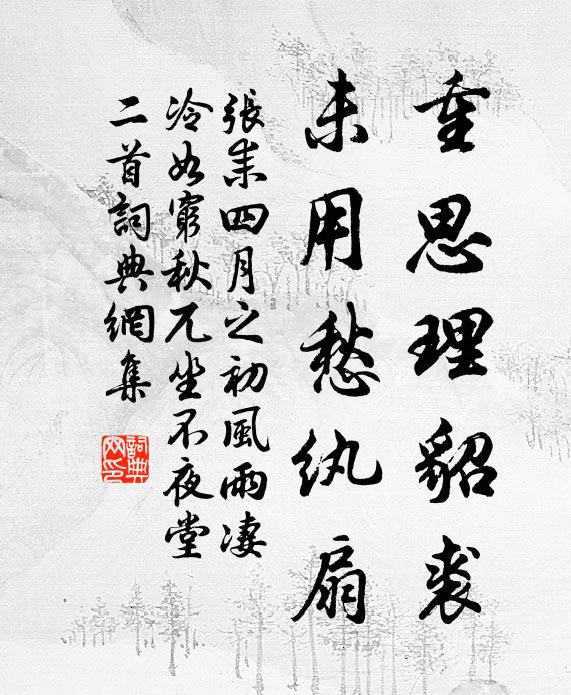 重思理貂裘
未用愁紈扇
張耒四月之初風雨淒
冷如窮秋兀坐不夜堂
二首詞典網集
詞典網印